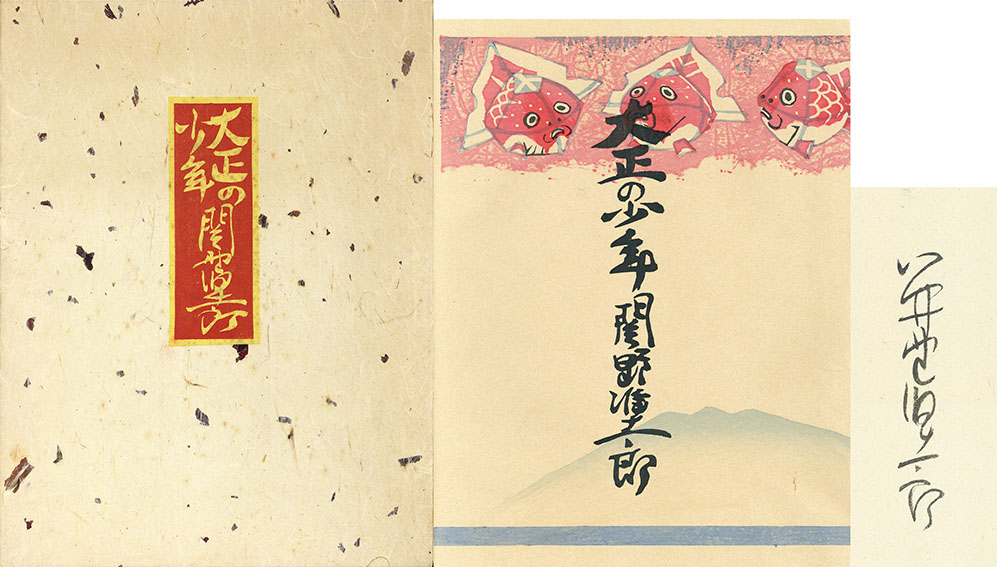 大正の
少年
関野凖一郎
大正の少年 関野凖一郎
関野凖一郎